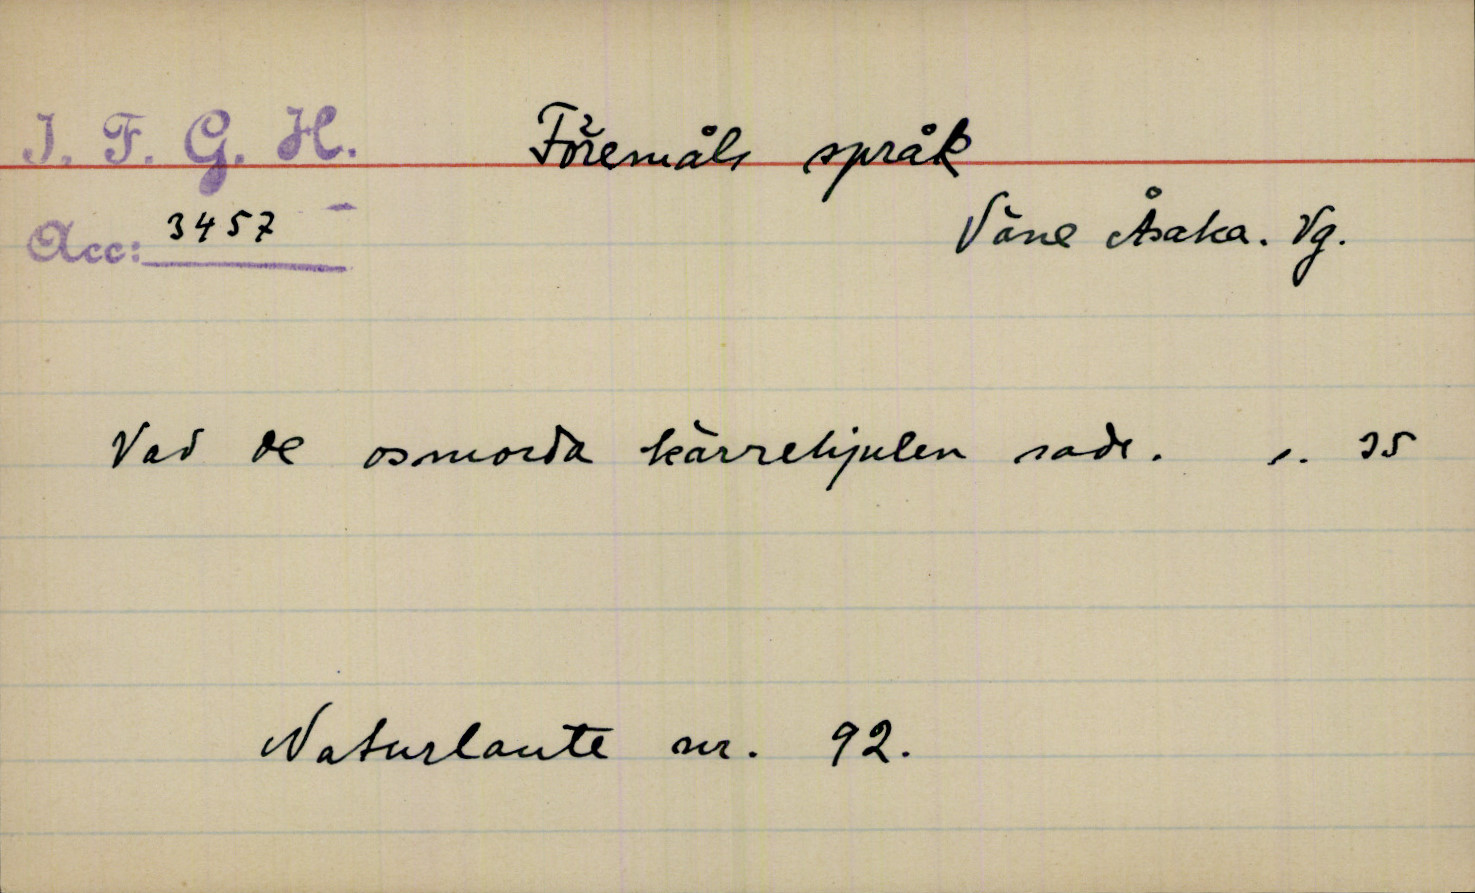 I. F. G. H.
Föremåls språk
Acc: 3457
Väne Åsaka. Vg.
Vad de osmorda kärrehjulen sade. s. 35
Naturlaute nr. 92.